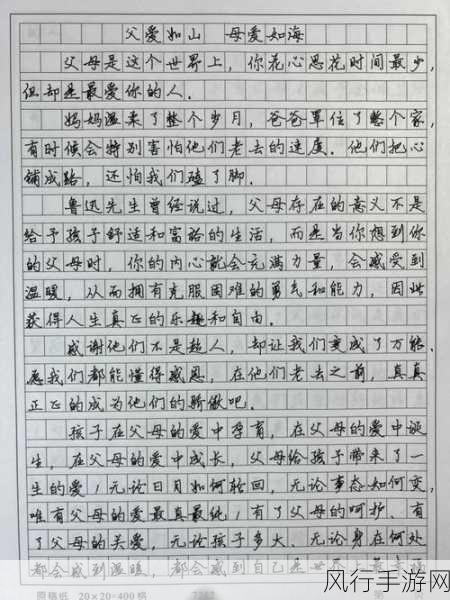 父爱如山 母爱如海
父母是这个世界上,你花心思花时间最少,
但却是最爱你的人.
妈妈温柔了整个岁月,爸爸罩住了整个家,
有时候会特别害怕他们老去的速度.他们把心
铺成路,还怕我们磕了脚.
鲁迅先生曾经说过,父母存在的意义不是
给予孩子舒适和富裕的生活,而是当你想到你
的父母时,你的内心就会充满力量,会感受到
温暖,从而拥有克服困难的勇气和能力,因此
获得人生真正的乐趣和自由.
感谢他们不是超人,却让我们变成了万能.
愿我们都能懂得感恩,在他们老去之前,真真
正正的成为他们的骄傲吧.
孩子在父母的爱中孕育,在父母的爱中诞
生,在父母的爱中成长,父母给孩子带来了一
生的爱!无论日月如何轮回,无论事态如何变,
唯有父母的爱最真最纯!有了父母的呵护.有
了父母的关爱,无论孩子多大.无论身在何处
都会感到温暖,都会感到自己是世界上最幸福
原稿纸 20×20=400格
风行手游网